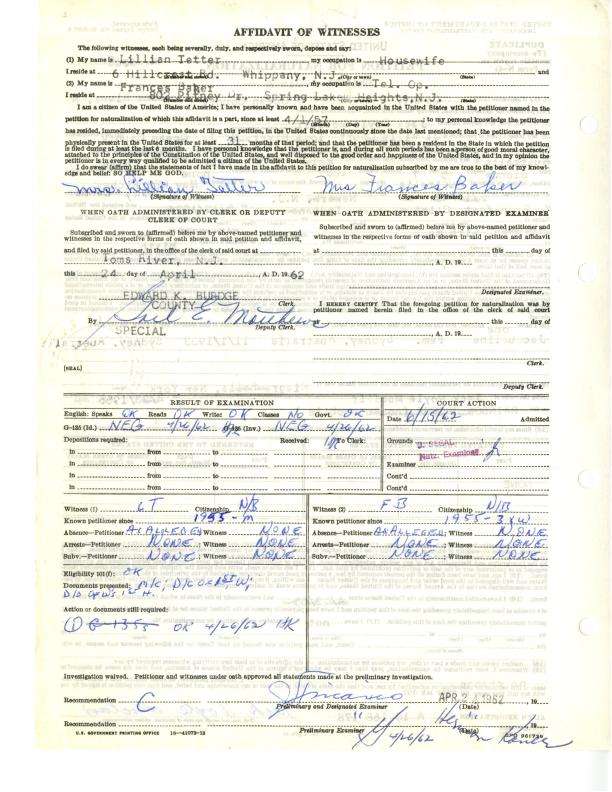 AFFIDAVIT OF WITNESSES
The following witnesses, each being severally, duly, and respectively sworn, depose and say:
(1) My name is Lillian Tetter my occupation is Housewife
I reside at 6 Hillcrest Rd. Whippany, N.J. (City or town) (State) and
(2) My name is Frances Baker my occupation is Tel. Op.
I reside at 802 Pitney Dr., Spring Lake Heights, N.J.
I am a citizen of the United States of America; I have personally known and have been acquainted in the United States with the petitioner named in the
petition for naturalization of which this affidavit is a part, since at least 4/1/57 (Month) (Day) (Year); to my personal knowledge the petitioner
has resided, immediately preceding the date of filing this petition, in the United States continuously since the date last mentioned; that the petitioner has been
physically present in the United States for at least 31 months of that period; and that the petitioner has been a resident in the State in which the petition
is filed during at least the last 6 months. I have personal knowledge that the petitioner is, and during all such periods has been a person of good moral character,
attached to the principles of the Constitution of the United States, and well disposed to the good order and happiness of the United States, and in my opinion the
petitioner is in every way qualified to be admitted a citizen of the United States.
I do swear (affirm) that the statements of fact I have made in the affidavit to this petition for naturalization subscribed by me are true to the best of my knowl-
edge and belief: SO HELP ME GOD.
Mrs. Lillian Tetter Mrs Frances Baker
(Signature of Witness) (Signature of Witness)
WHEN OATH ADMINISTERED BY CLERK OR DEPUTY CLERK OF COURT
Subscribed and sworn to (affirmed) before me by above-named petitioner and
witnesses in the respective forms of oath shown in said petition and affidavit,
and filed by said petitioner, in the office of the clerk of said court at
Toms River, N.J.
this 24 day of April, A. D. 1962
EDWARD K. BURDGE
COUNTY Clerk.
By Gail E. Matthews
SPECIAL Deputy Clerk.
[SEAL]
WHEN OATH ADMINISTERED BY DESIGNATED EXAMINER
Subscribed and sworn to (affirmed) before me by above-named petitioner and
witnesses in the respective forms of oath shown in said petition and affidavit
at this day of
, A. D. 19
Designated Examiner.
I HEREBY CERTIFY That the foregoing petition for naturalization was by
petitioner named herein filed in the office of the clerk of said court
at this day of
, A. D. 19
Clerk.
Deputy Clerk.
RESULT OF EXAMINATION
English: Speaks OK Reads OK Writes OK Classes NO Govt. OK
G-135 (Id.) NEG 4/26/62 G-135 (Inv.) NEG 4/26/62
Depositions required: Received: To Clerk:
in from to
in from to
in from to
in from to
COURT ACTION
Date 6/15/62 Admitted
Grounds J. SEGAL
Natz. Examiner
Examiner
Cont'd
Cont'd
Witness (1) LT Citizenship N/B
Known petitioner since 1955 - m
Absence—Petitioner AS ALLEGED; Witness NONE
Arrests—Petitioner NONE; Witness NONE
Subv.—Petitioner NONE; Witness NONE
Witness (2) FB Citizenship N/B
Known petitioner since 1955 - 3 x w
Absence—Petitioner AS ALLEGED; Witness NONE
Arrests—Petitioner NONE; Witness NONE
Subv.—Petitioner NONE; Witness NONE
Eligibility 101(f): OK
Documents presented: M/C; D/C OF 1ST W;
D/D OF W's 1st H.
Action or documents still required:
(1) G-135s OK 4/26/62
Investigation waived. Petitioner and witnesses under oath approved all statements made at the preliminary investigation.
Recommendation C APR 24 1962, 19
Preliminary and Designated Examiner (Date)
Recommendation 4/26/62 , 19
Preliminary Examiner (Date)
U.S. GOVERNMENT PRINTING OFFICE 16—41073-13 GPO 961799